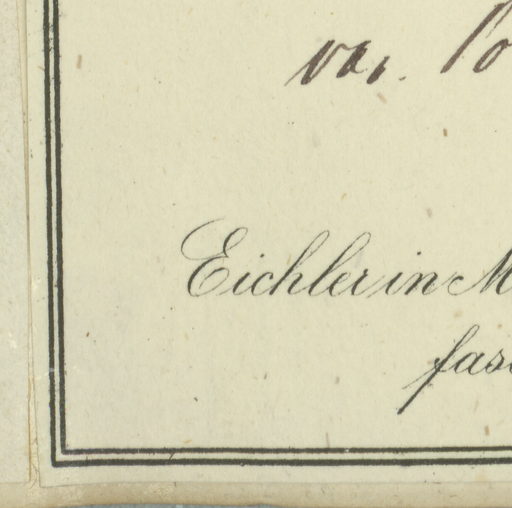 var. Po
Eichler in M
fasc